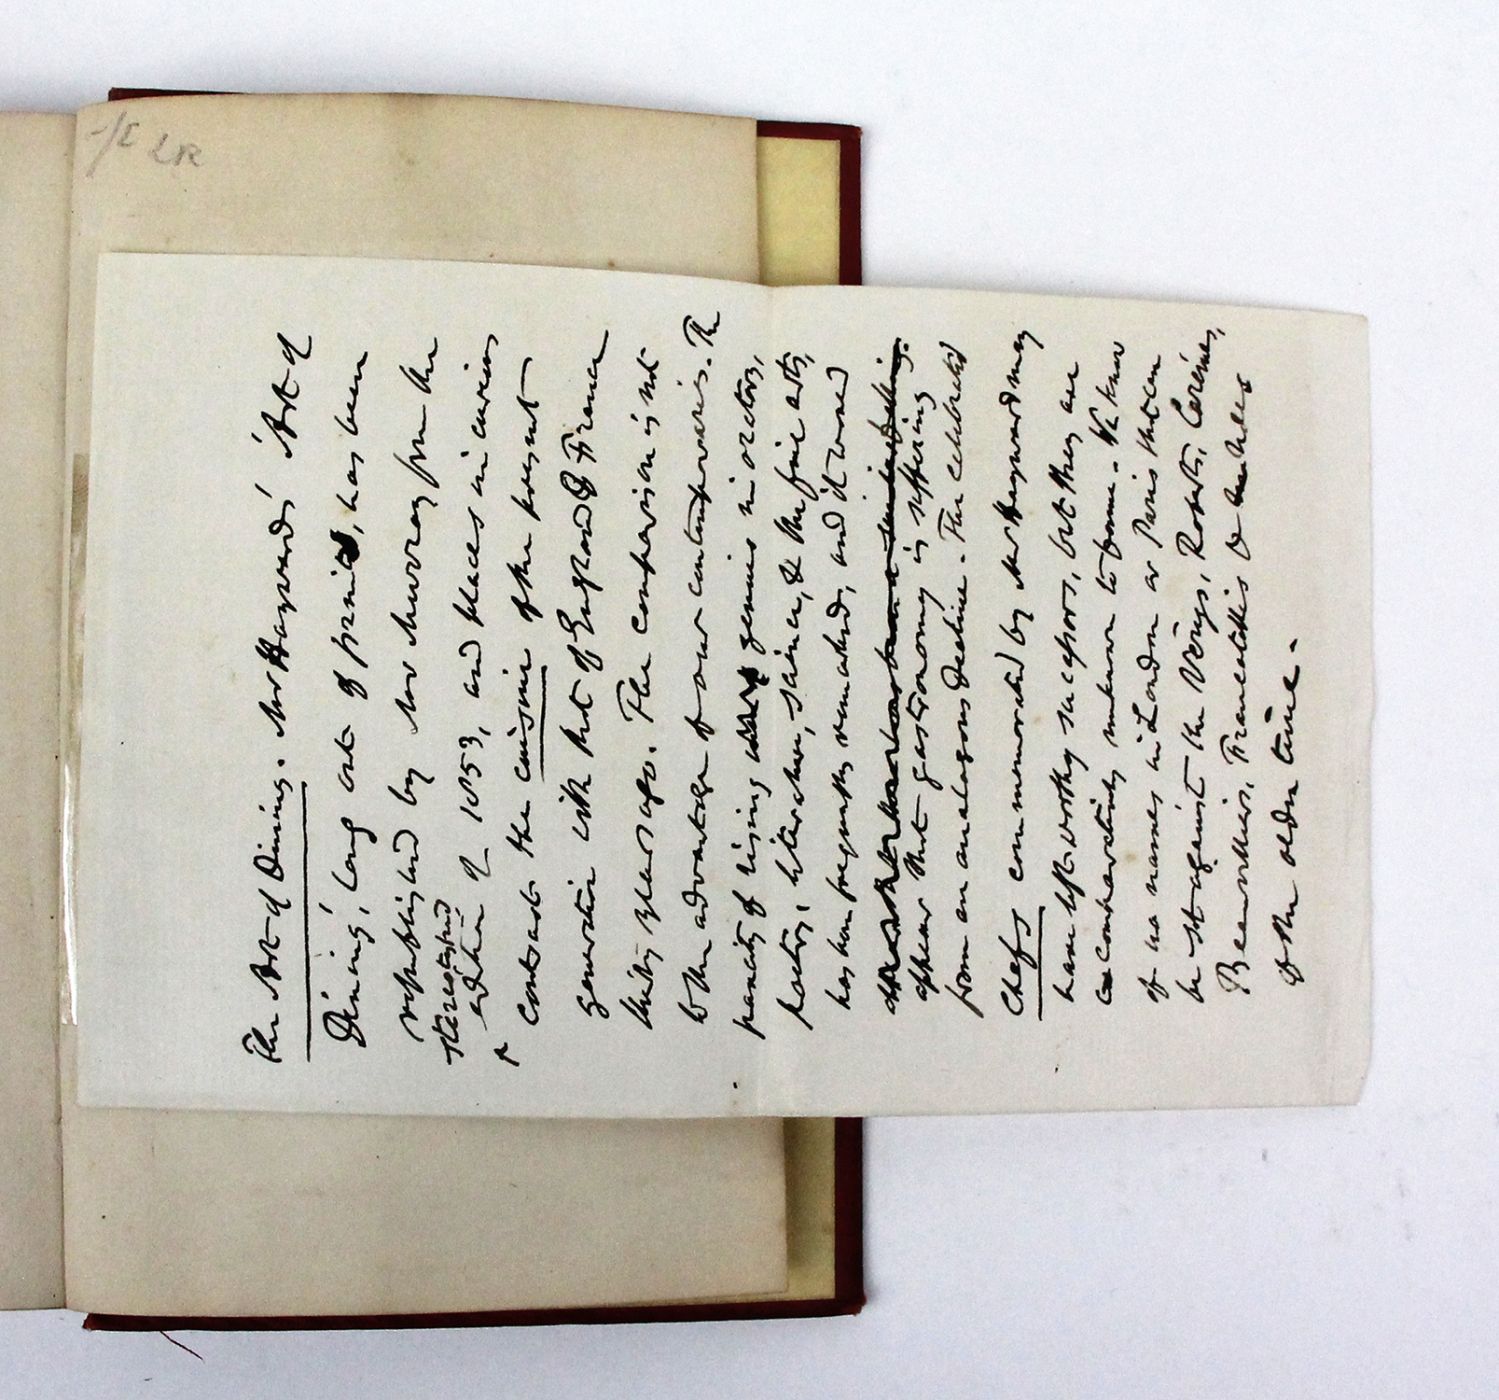 -/6 LR
The Art of Dining. Mr Hayward's 'Art of
Dining', long out of print, has been
republished by Mr Murray from the
stereotyped
edition of 1853, and places in curious
contrast the cuisine of the present
generation with that of England & France
thirty years ago. The comparison is not
to the advantage of our contemporaries. The
paucity of rising genius in oratory,
poetry, literature, science, & the fine arts,
has been frequently remarked, and it would
appear that gastronomy is suffering
from an analogous decline. The celebrated
Chefs commemorated by Mr Hayward may
have left worthy successors, but they are
comparatively unknown to fame. We know
of no names in London or Paris that can
be set against the Verys, Roberts, Carêmes,
Beauvilliers, Francatellis &
of the olden time.